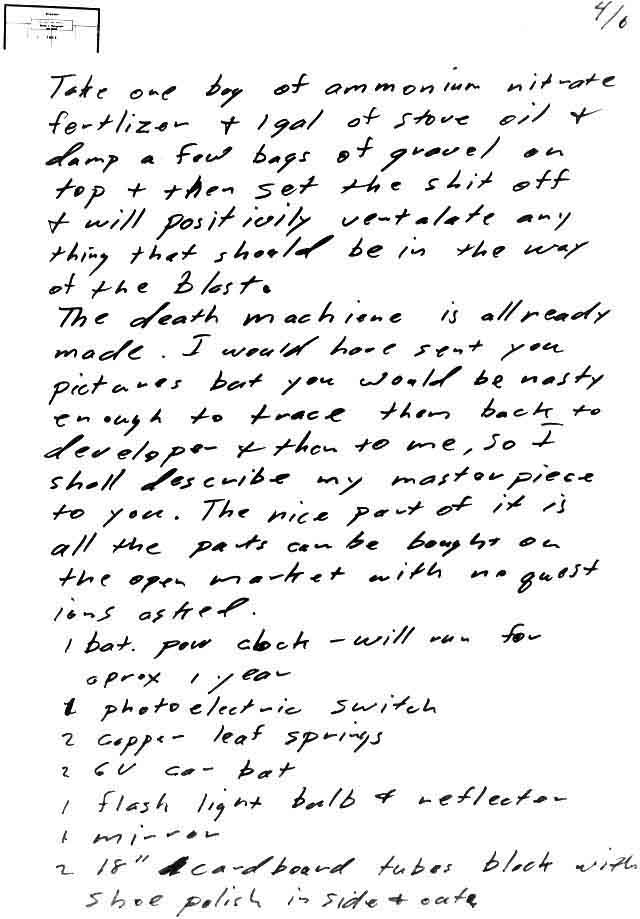 4/6
Take one bag of ammonium nitrate
fertlizer + 1 gal of stove oil &
damp a few bags of gravel on
top + then set the shit off
+ will positivily ventalate any
thing that should be in the way
of the Blast.
The death machiene is allready
made. I would have sent you
pictures but you would be nasty
enough to trace them back to
developer + then to me, so I
shall describe my masterpiece
to you. The nice part of it is
all the parts can be bought on
the open market with no quest
ions asked.
1 bat. pow clock - will run for
aprox 1 year
1 photoelectric switch
2 copper leaf springs
2 6V car bat
1 flash light bulb & reflector
1 mirror
2 18" cardboard tubes black with
shoe polish in side + oute